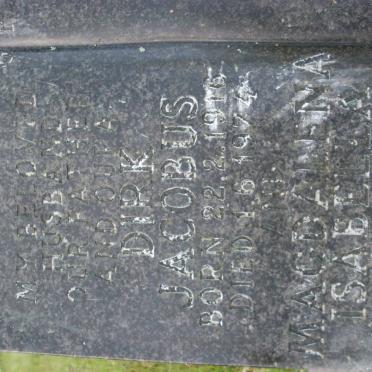 MY BELOVED
HUSBAND
OUR FATHER
AND OUPA
DIRK
JACOBUS
BORN 22.2.1916
DIED 1.6.1974
AND
MAGDALENA
ISABELLA